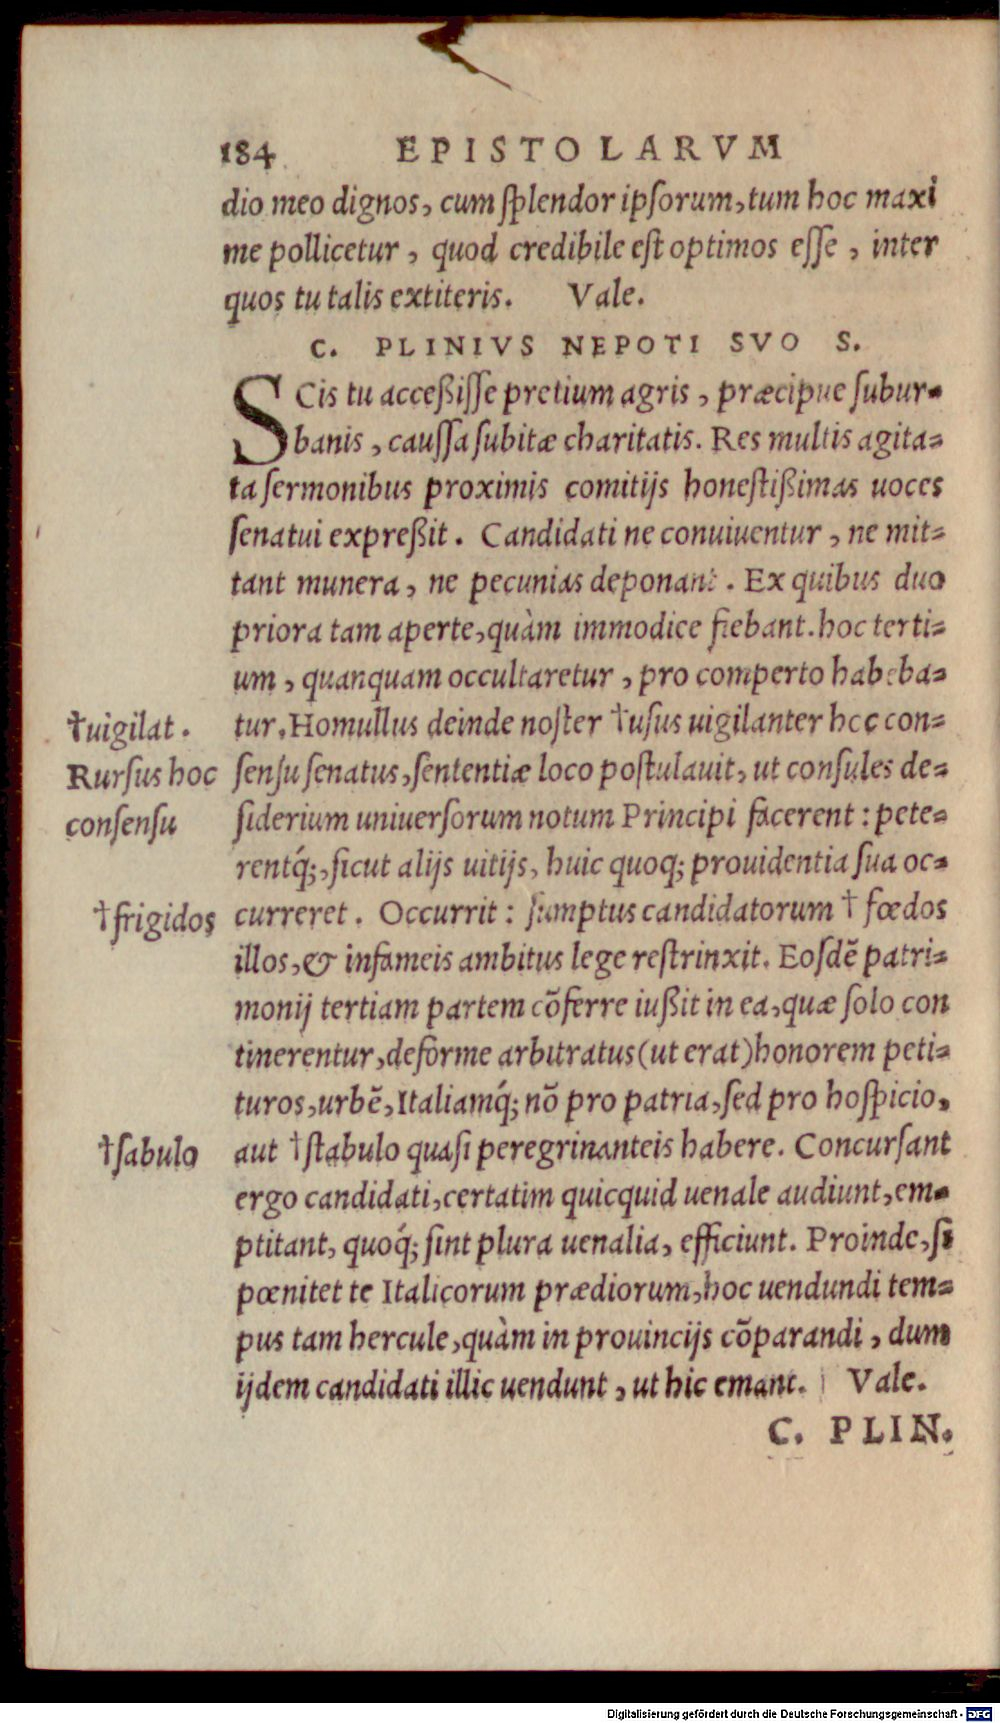 184 EPISTOLARVM
dio meo dignos, cum splendor ipsorum, tum hoc maxi
me pollicetur, quod credibile est optimos esse, inter
quos tu talis extiteris. Vale.
C. PLINIVS NEPOTI SVO S.
SCis tu acceßisse pretium agris, præcipue subur-
banis, caussa subitæ charitatis. Res multis agita-
ta sermonibus proximis comitijs honestißimas uoces
senatui expreßit. Candidati ne conuiuentur, ne mit-
tant munera, ne pecunias deponant. Ex quibus duo
priora tam aperte, quàm immodice fiebant. hoc terti-
um, quanquam occultaretur, pro comperto habeba-
tur. Homullus deinde noster †usus uigilanter hoc con-
sensu senatus, sententiæ loco postulauit, ut consules de-
siderium uniuersorum notum Principi facerent: pete-
rentq́;, sicut alijs uitijs, huic quoq; prouidentia sua oc-
curreret. Occurrit: sumptus candidatorum † fœdos
illos, & infameis ambitus lege restrinxit. Eosdē patri-
monij tertiam partem cōferre iußit in ea, quæ solo con
tinerentur, deforme arbitratus (ut erat) honorem peti-
turos, urbē, Italiamq́; nō pro patria, sed pro hospicio,
aut †stabulo quasi peregrinanteis habere. Concursant
ergo candidati, certatim quicquid uenale audiunt, em-
ptitant, quoq́; sint plura uenalia, efficiunt. Proinde, si
pœnitet te Italicorum prædiorum, hoc uendundi tem-
pus tam hercule, quàm in prouincijs cōparandi, dum
ijdem candidati illic uendunt, ut hic emant. Vale.
C. PLIN.
†uigilat.
Rursus hoc
consensu
†frigidos
†sabulo
Digitalisierung gefördert durch die Deutsche Forschungsgemeinschaft - DFG